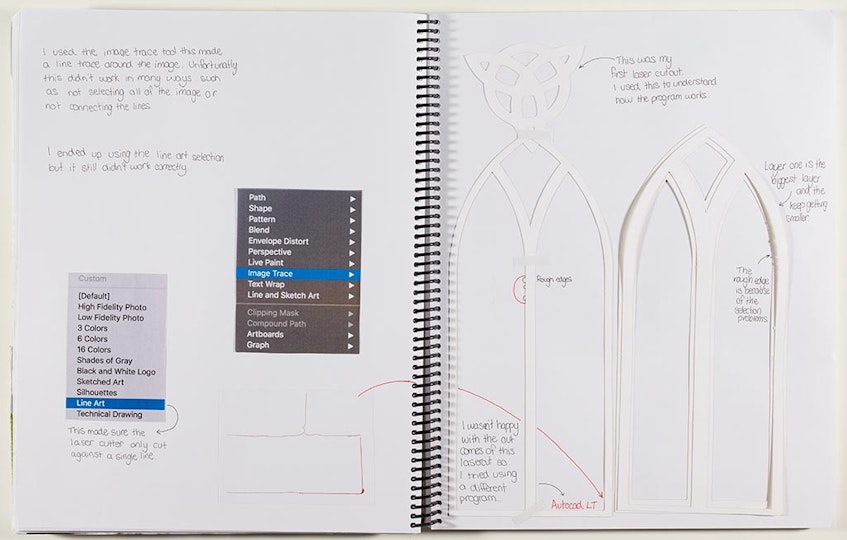 I used the image trace tool this made
a line trace around the image. Unfortunatly
this didn't work in many ways such
as not selecting all of the image or
not connecting the lines.
I ended up using the line art selection
but it still didn't work correctly.
Path
Shape
Pattern
Blend
Envelope Distort
Perspective
Live Paint
Image Trace
Text Wrap
Line and Sketch Art
Clipping Mask
Compound Path
Artboards
Graph
Custom
[Default]
High Fidelity Photo
Low Fidelity Photo
3 Colors
6 Colors
16 Colors
Shades of Gray
Black and White Logo
Sketched Art
Silhouettes
Line Art
Technical Drawing
This made sure the
laser cutter only cut
against a single line.
This was my
first laser cutout.
I used this to understand
how the program works.
Layer one is the
biggest layer
and the
keep getting
smaller
Rough edges
The
rough edge
is because
of the
selection
problems.
I wasn't happy
with the out
comes of this
lasercut so
I tried using
a different
program.
Autocad LT